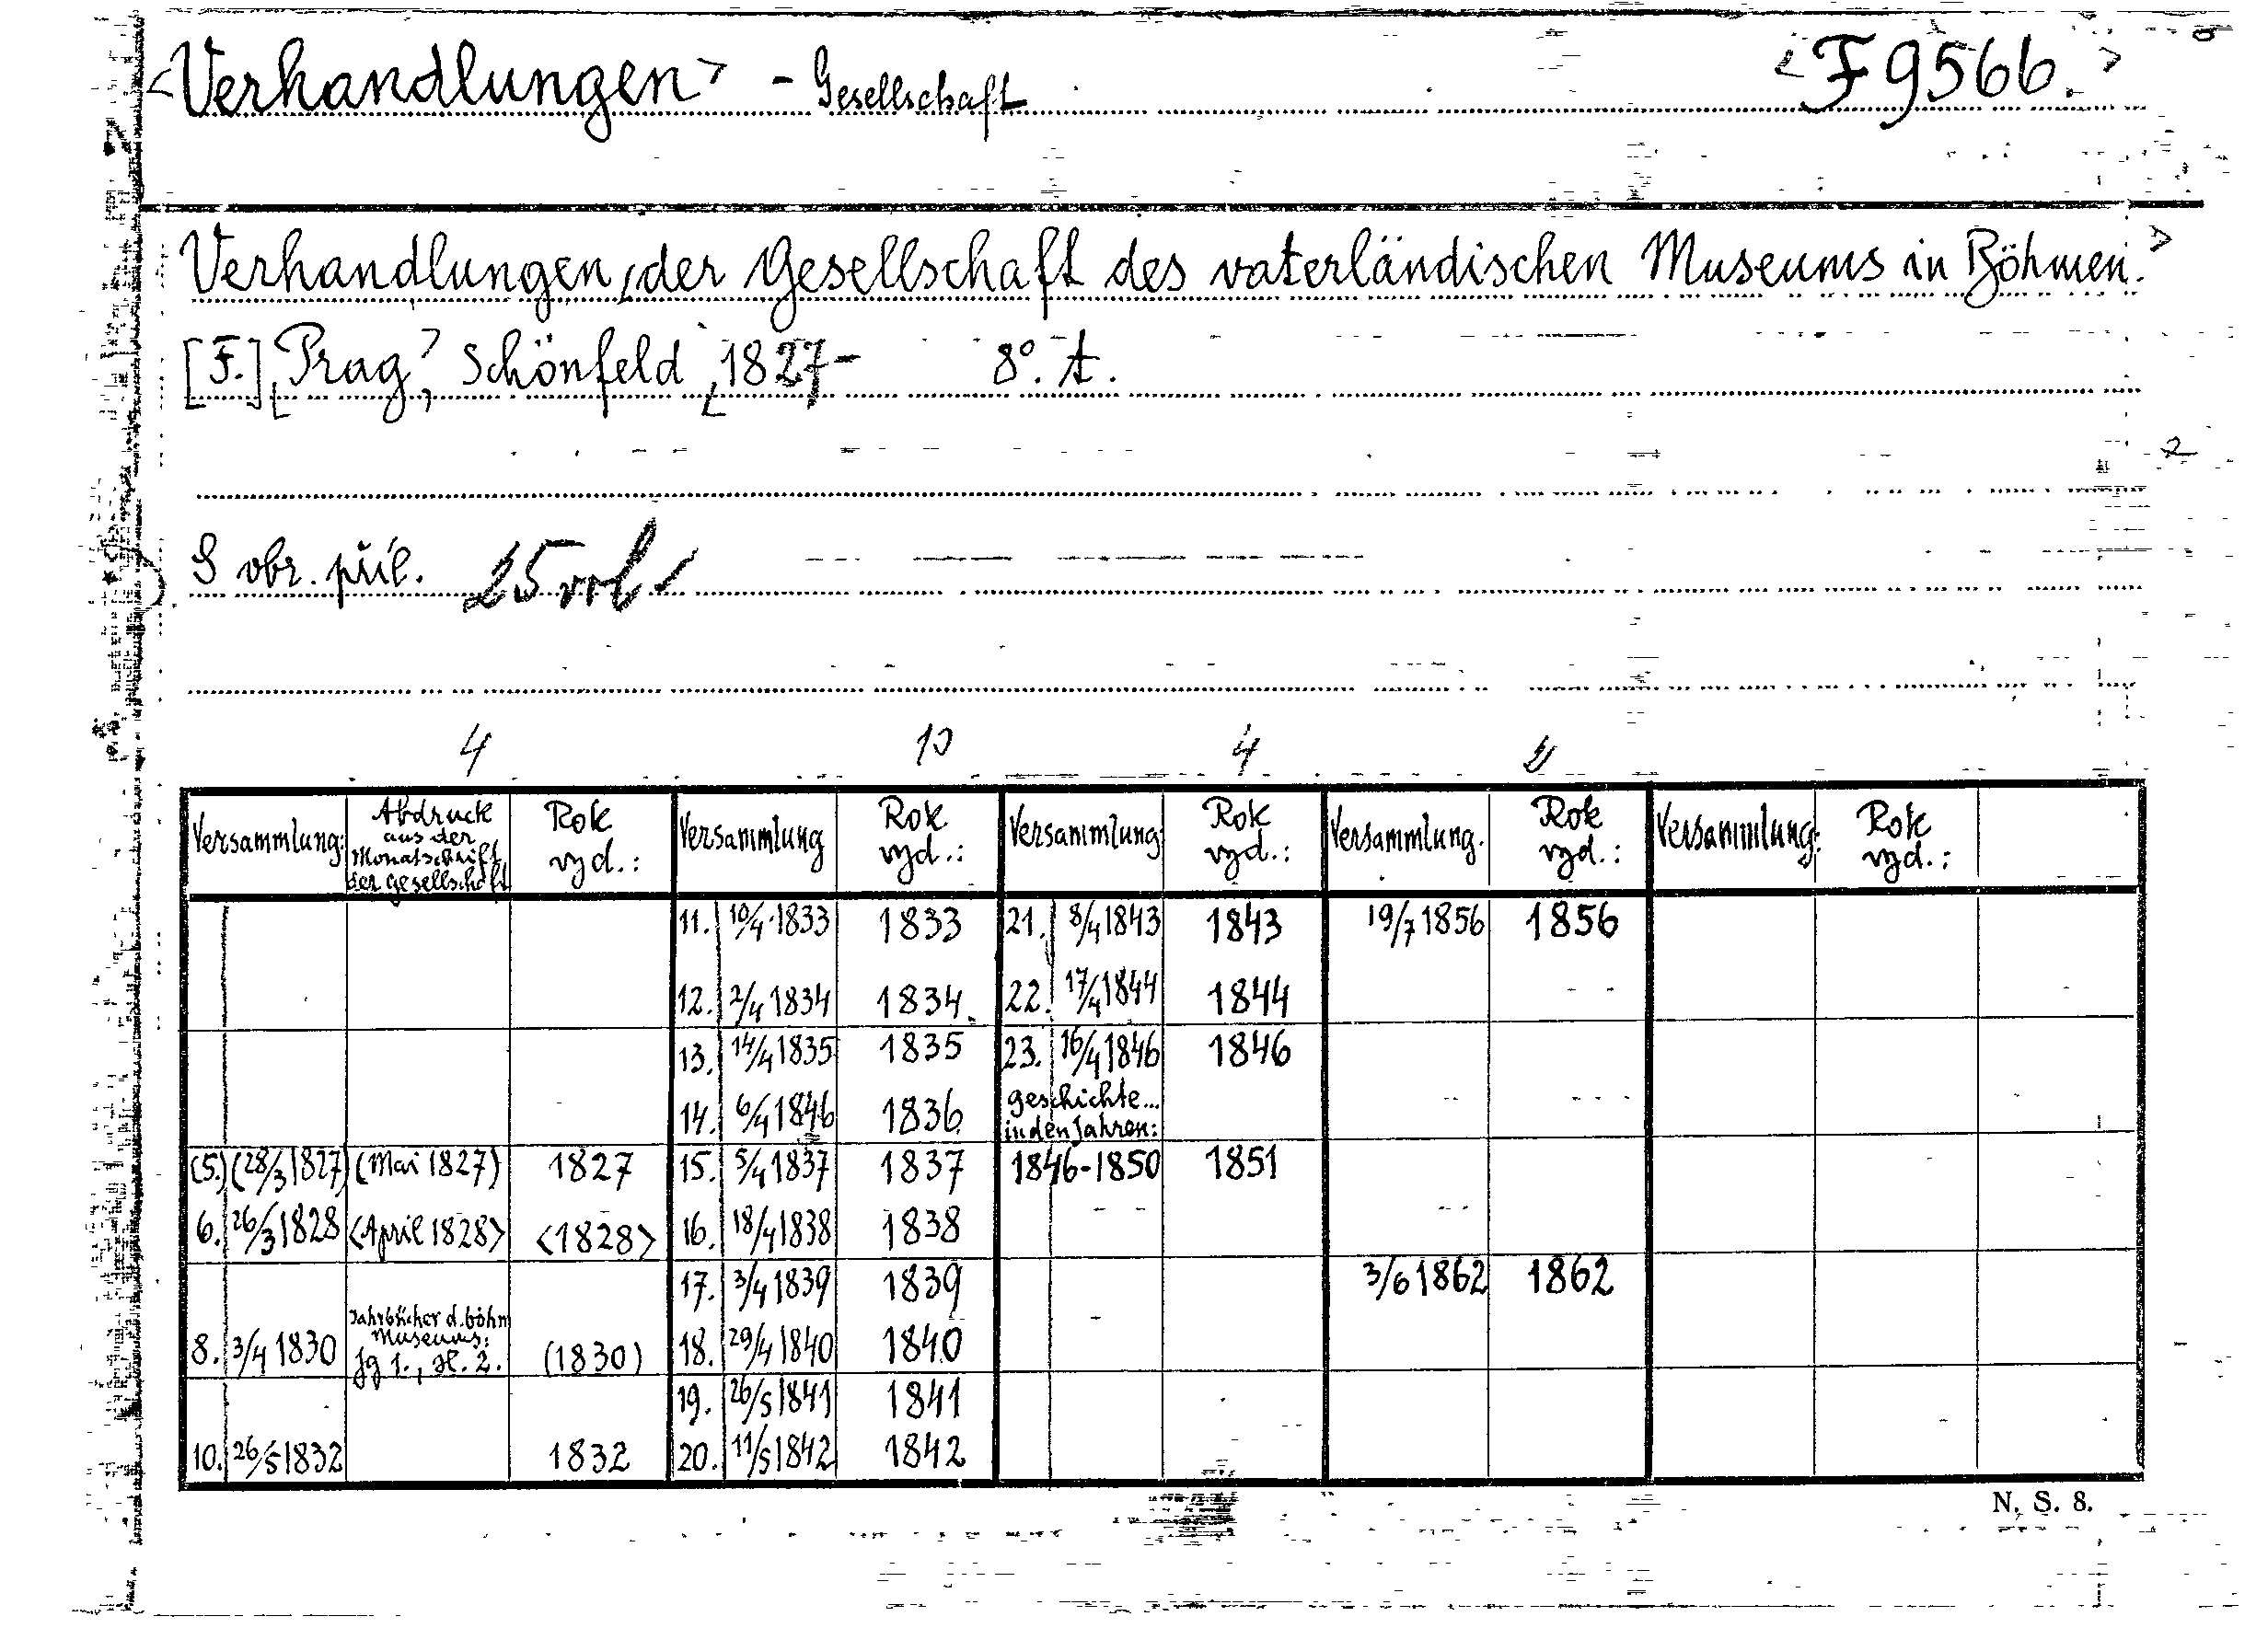 <Verhandlungen> - Gesellschaft <F 9566.>
Verhandlungen der Gesellschaft des vaterländischen Museums in Böhmen.>
[F.] Prag, Schönfeld 1827- 8°. A.
S obr. příl. 25 vol
4 10 4 2
Versammlung: Abdruck aus der Monatschrift der Gesellschaft Rok vyd.: Versammlung Rok vyd.: Versammlung: Rok vyd.: Versammlung. Rok vyd.: Versammlung: Rok vyd.:
11. 10/4 1833 1833 21. 8/4 1843 1843 19/7 1856 1856
12. 2/4 1834 1834. 22. 17/4 1844 1844
13. 14/4 1835 1835 23. 16/4 1846 1846
14. 6/4 1846 1836 Geschichte...
in den Jahren:
(5.) (28/3 1827) (Mai 1827) 1827 15. 5/4 1837 1837 1846-1850 1851
6. 26/3 1828 <April 1828> <1828> 16. 18/4 1838 1838
17. 3/4 1839 1839 3/6 1862 1862
8. 3/4 1830 Jahrbücher d. böhm Museums: Jg 1., H. 2. (1830) 18. 29/4 1840 1840
19. 26/5 1841 1841
10. 26/5 1832 1832 20. 11/5 1842 1842
N. S. 8.